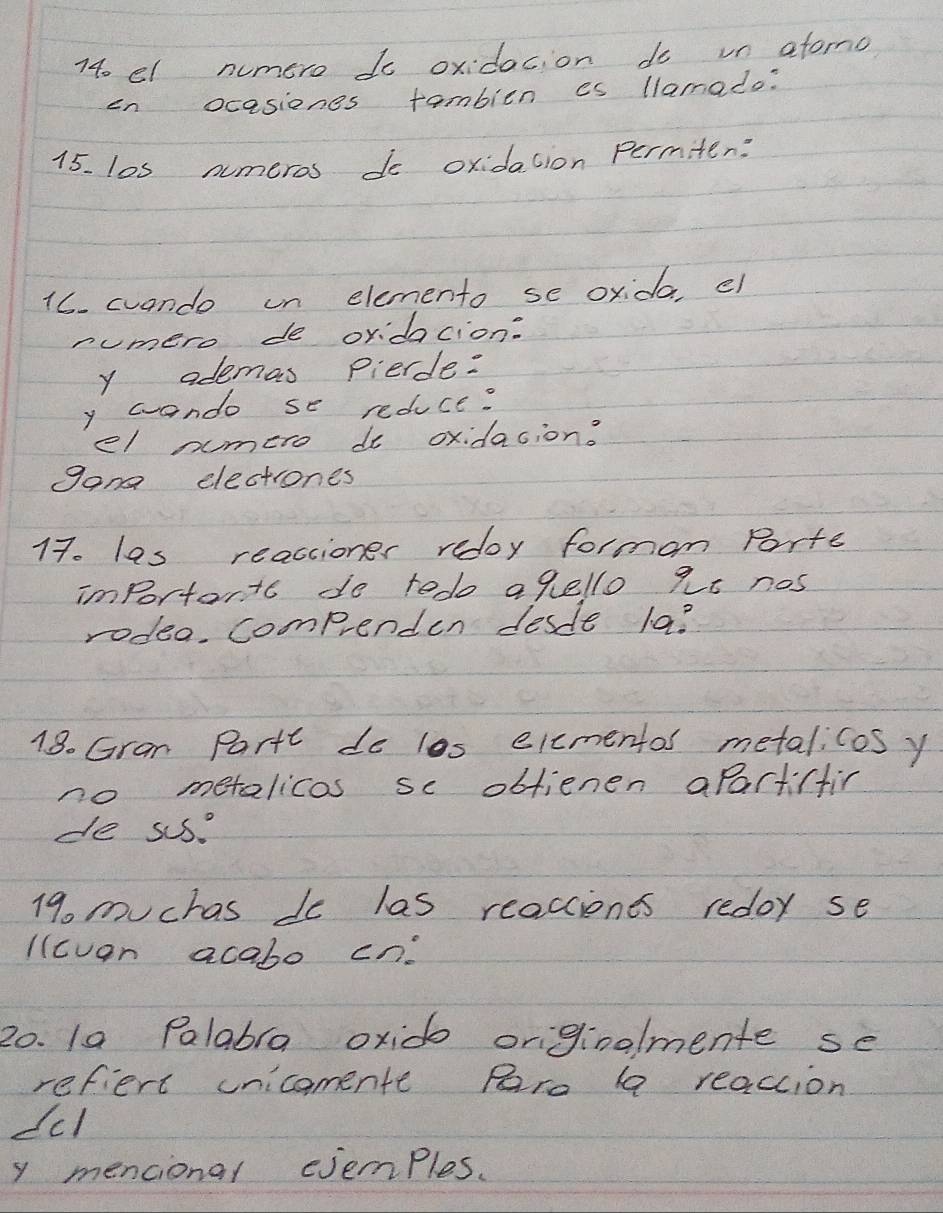 14. el numero de oxidacion de un atomo
en ocasiones tambien es llamado:
15. los numeros de oxidacion Permiten:
16. cuando un elemento se oxida, el
numero de oxidacion:
y ademas Pierde:
y cuando se reduce:
el numero de oxidacion:
gana electrones
17. las reacciones redox forman Parte
importante de todo aquello que nos
rodea. Comprenden desde la:
18. Gran Parte de los elementos metalicos y
no metalicos se obtienen aPartirtir
de sus:
19. muchas de las reacciones redox se
llevan acabo en:
20. la Palabra oxido originalmente se
refiere unicamente Para la reaccion
del
y mencionar ejemPlos.